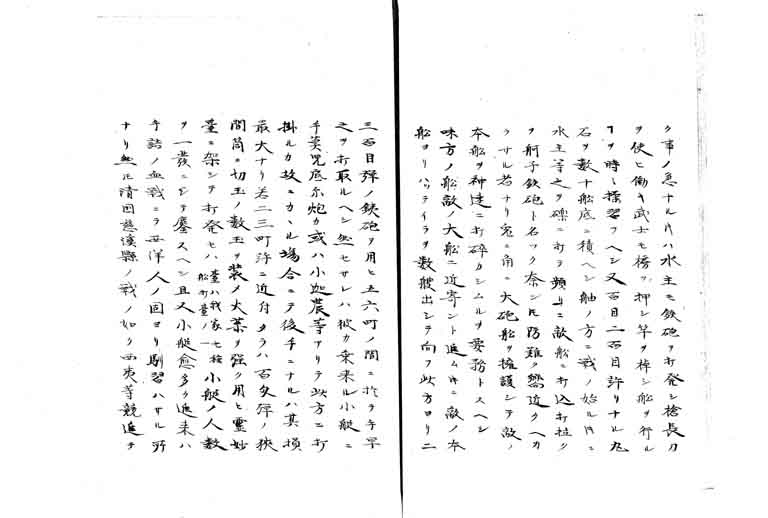 ク事ノ急ナルトキハ水主モ鉄砲ヲ打発シ槍長刀
ヲ使ヒ働キ武士モ櫓ヲ押シ竿ヲ棹シ船ヲ行ル
ヿヲ時々操習フヘシ又百目二百目許リナル丸
石ヲ数十船底ニ積ヘシ舳ノ方ニ戦ノ始ルトキニ
水主等之ヲ礫ニ打ヲ頻リニ敵船ニ打込打拉ク
ヲ舸子鉄砲ト名ツク奈ントモ防難ク嚮近クヘカ
ラサル者ナリ兎ニ角ニ大砲船ヲ擁護シテ敵ノ
本船ヲ神速ニ打碎カシムルヲ要務トスヘシ
味方ノ船敵ノ大船ニ近寄ント進ムトキニ敵ノ本
船ヨリハッテイラヲ数艘出シテ向フ此方ヨリ二
三百目弾ノ鉄砲ヲ用ヒ五六町ノ間ニ於テ手早
之ヲ打取ルヘシ然セサレハ彼カ乗来ル小艇ニ
手葛児底尓炮カ或ハ小迦農等アリテ此方ニ打
掛ルカ故ニカヽル場合ニテ後手ニナルハ其損
最大ナリ若二三町許ニ近付タラハ百匁弾ノ狭
間筒ニ切玉ノ数玉ヲ装メ火薬ヲ強ク用ヒ霊妙
臺ニ架シテ打発セハ 臺ハ我家七種船打臺ノ一 小艇ノ人数
ヲ一発ニシテ鏖スヘシ且又小艇愈多ク進来ハ
手詰ノ血戦ニテ西洋人ノ固ヨリ馴習ハサル所
ナリ然トモ清国慈渓縣ノ戦ノ如ク西夷等競進テ